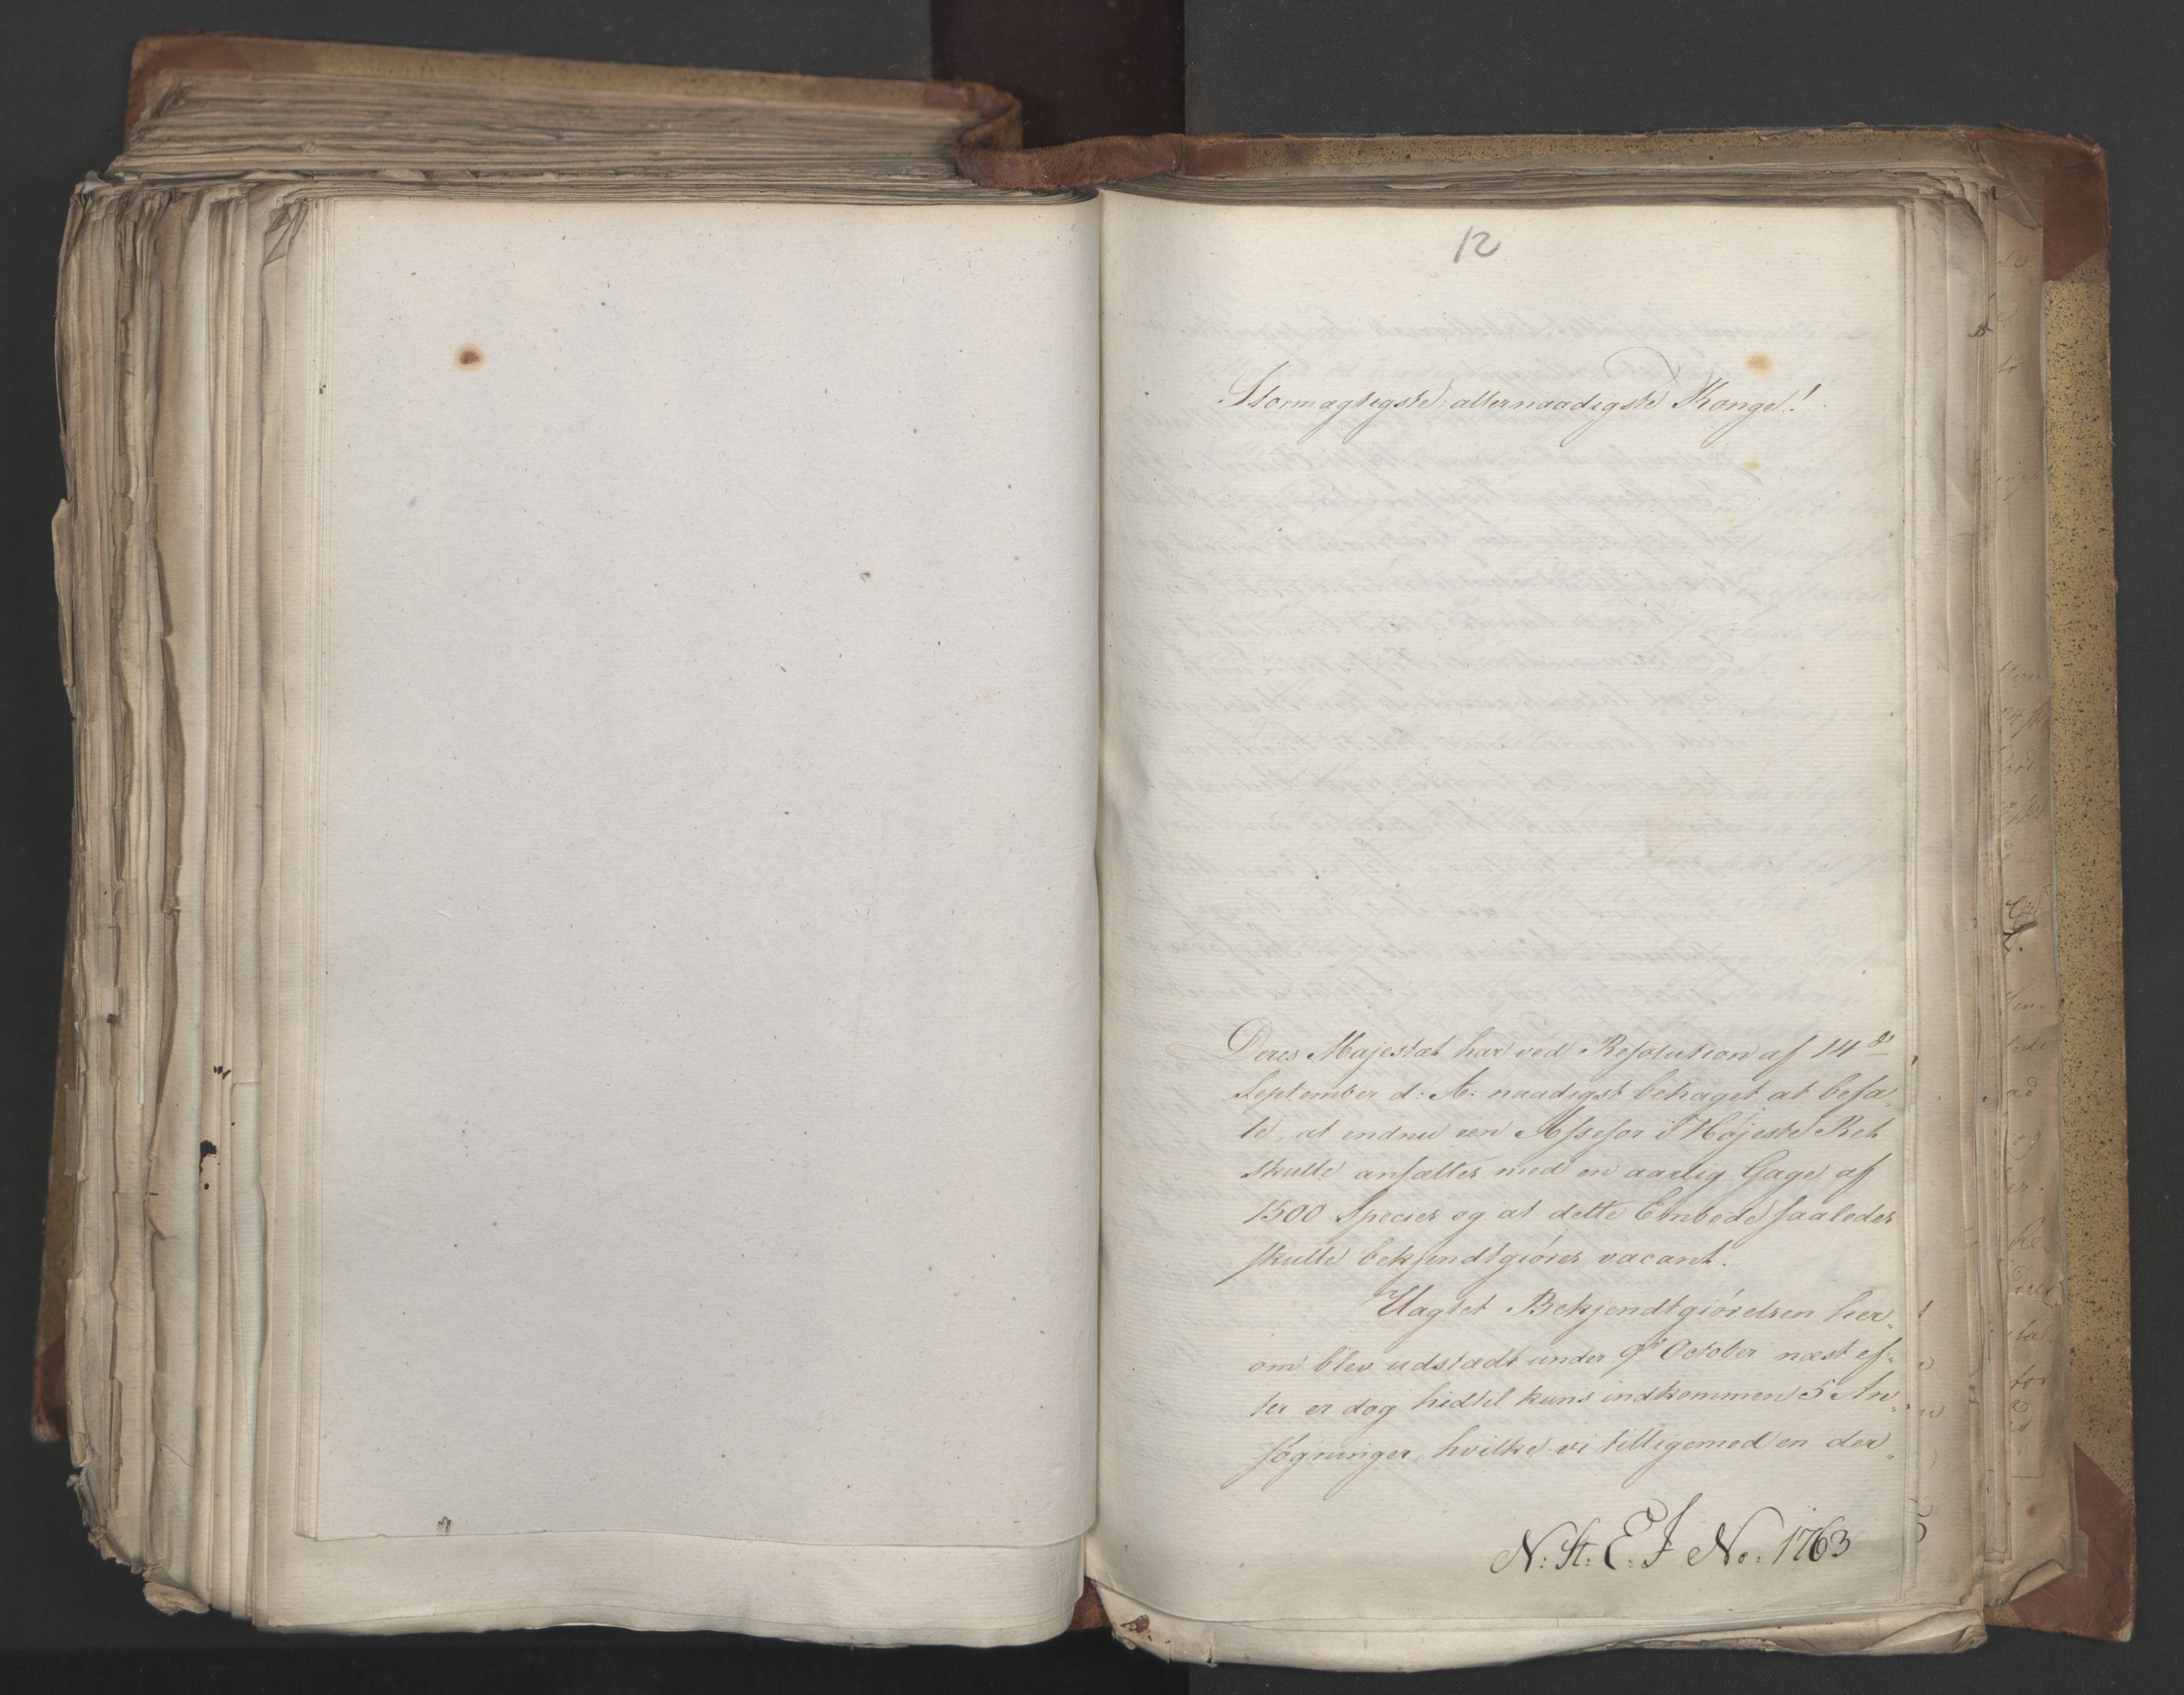 12
Stormægtigste allernaadigste Konge!
Deres Majestæt har ved Resolution af 14de
September d: A: naadigst behaget at befa-
le, at endnu een Assessor i Høieste Ret
skulle ansættes med en aarlig Gage af
1500 Species og at dette Embede saaledes
skulle bekjendtgiøres vacant.
Uagtet Bekjendtgiørelsen her-
om blev udstædt under 9de October næst ef-
ter er dog hidtil kuns indkommen 5 An-
søgninger, hvilke vi tilligemed en der-
N: St: E: J No: 1763